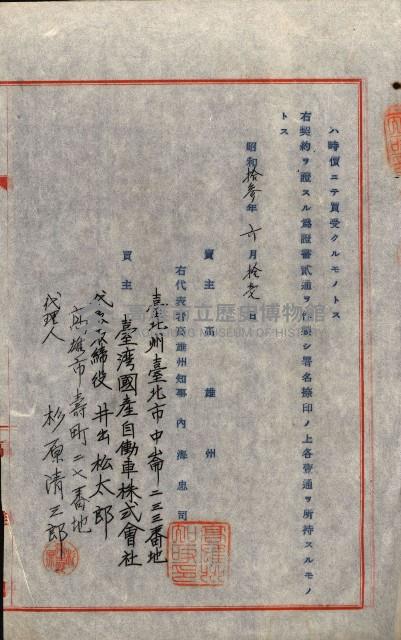 ハ時價ニテ買受クルモノトス
右契約ヲ證スル爲證書貳通ヲ作製シ署名捺印ノ上各壹通ヲ所持スルモノ
トス
昭和拾參年六月拾壱日
賣主 高雄州
右代表者高雄州知事 內海忠司
買主
臺北州臺北市中崙二三三番地
臺灣國産自働車株式會社
代表取締役 井出松太郎
高雄市壽町二七番地
代理人 杉原清三郎
立歷史博物館
MUSEUM OF HISTORY